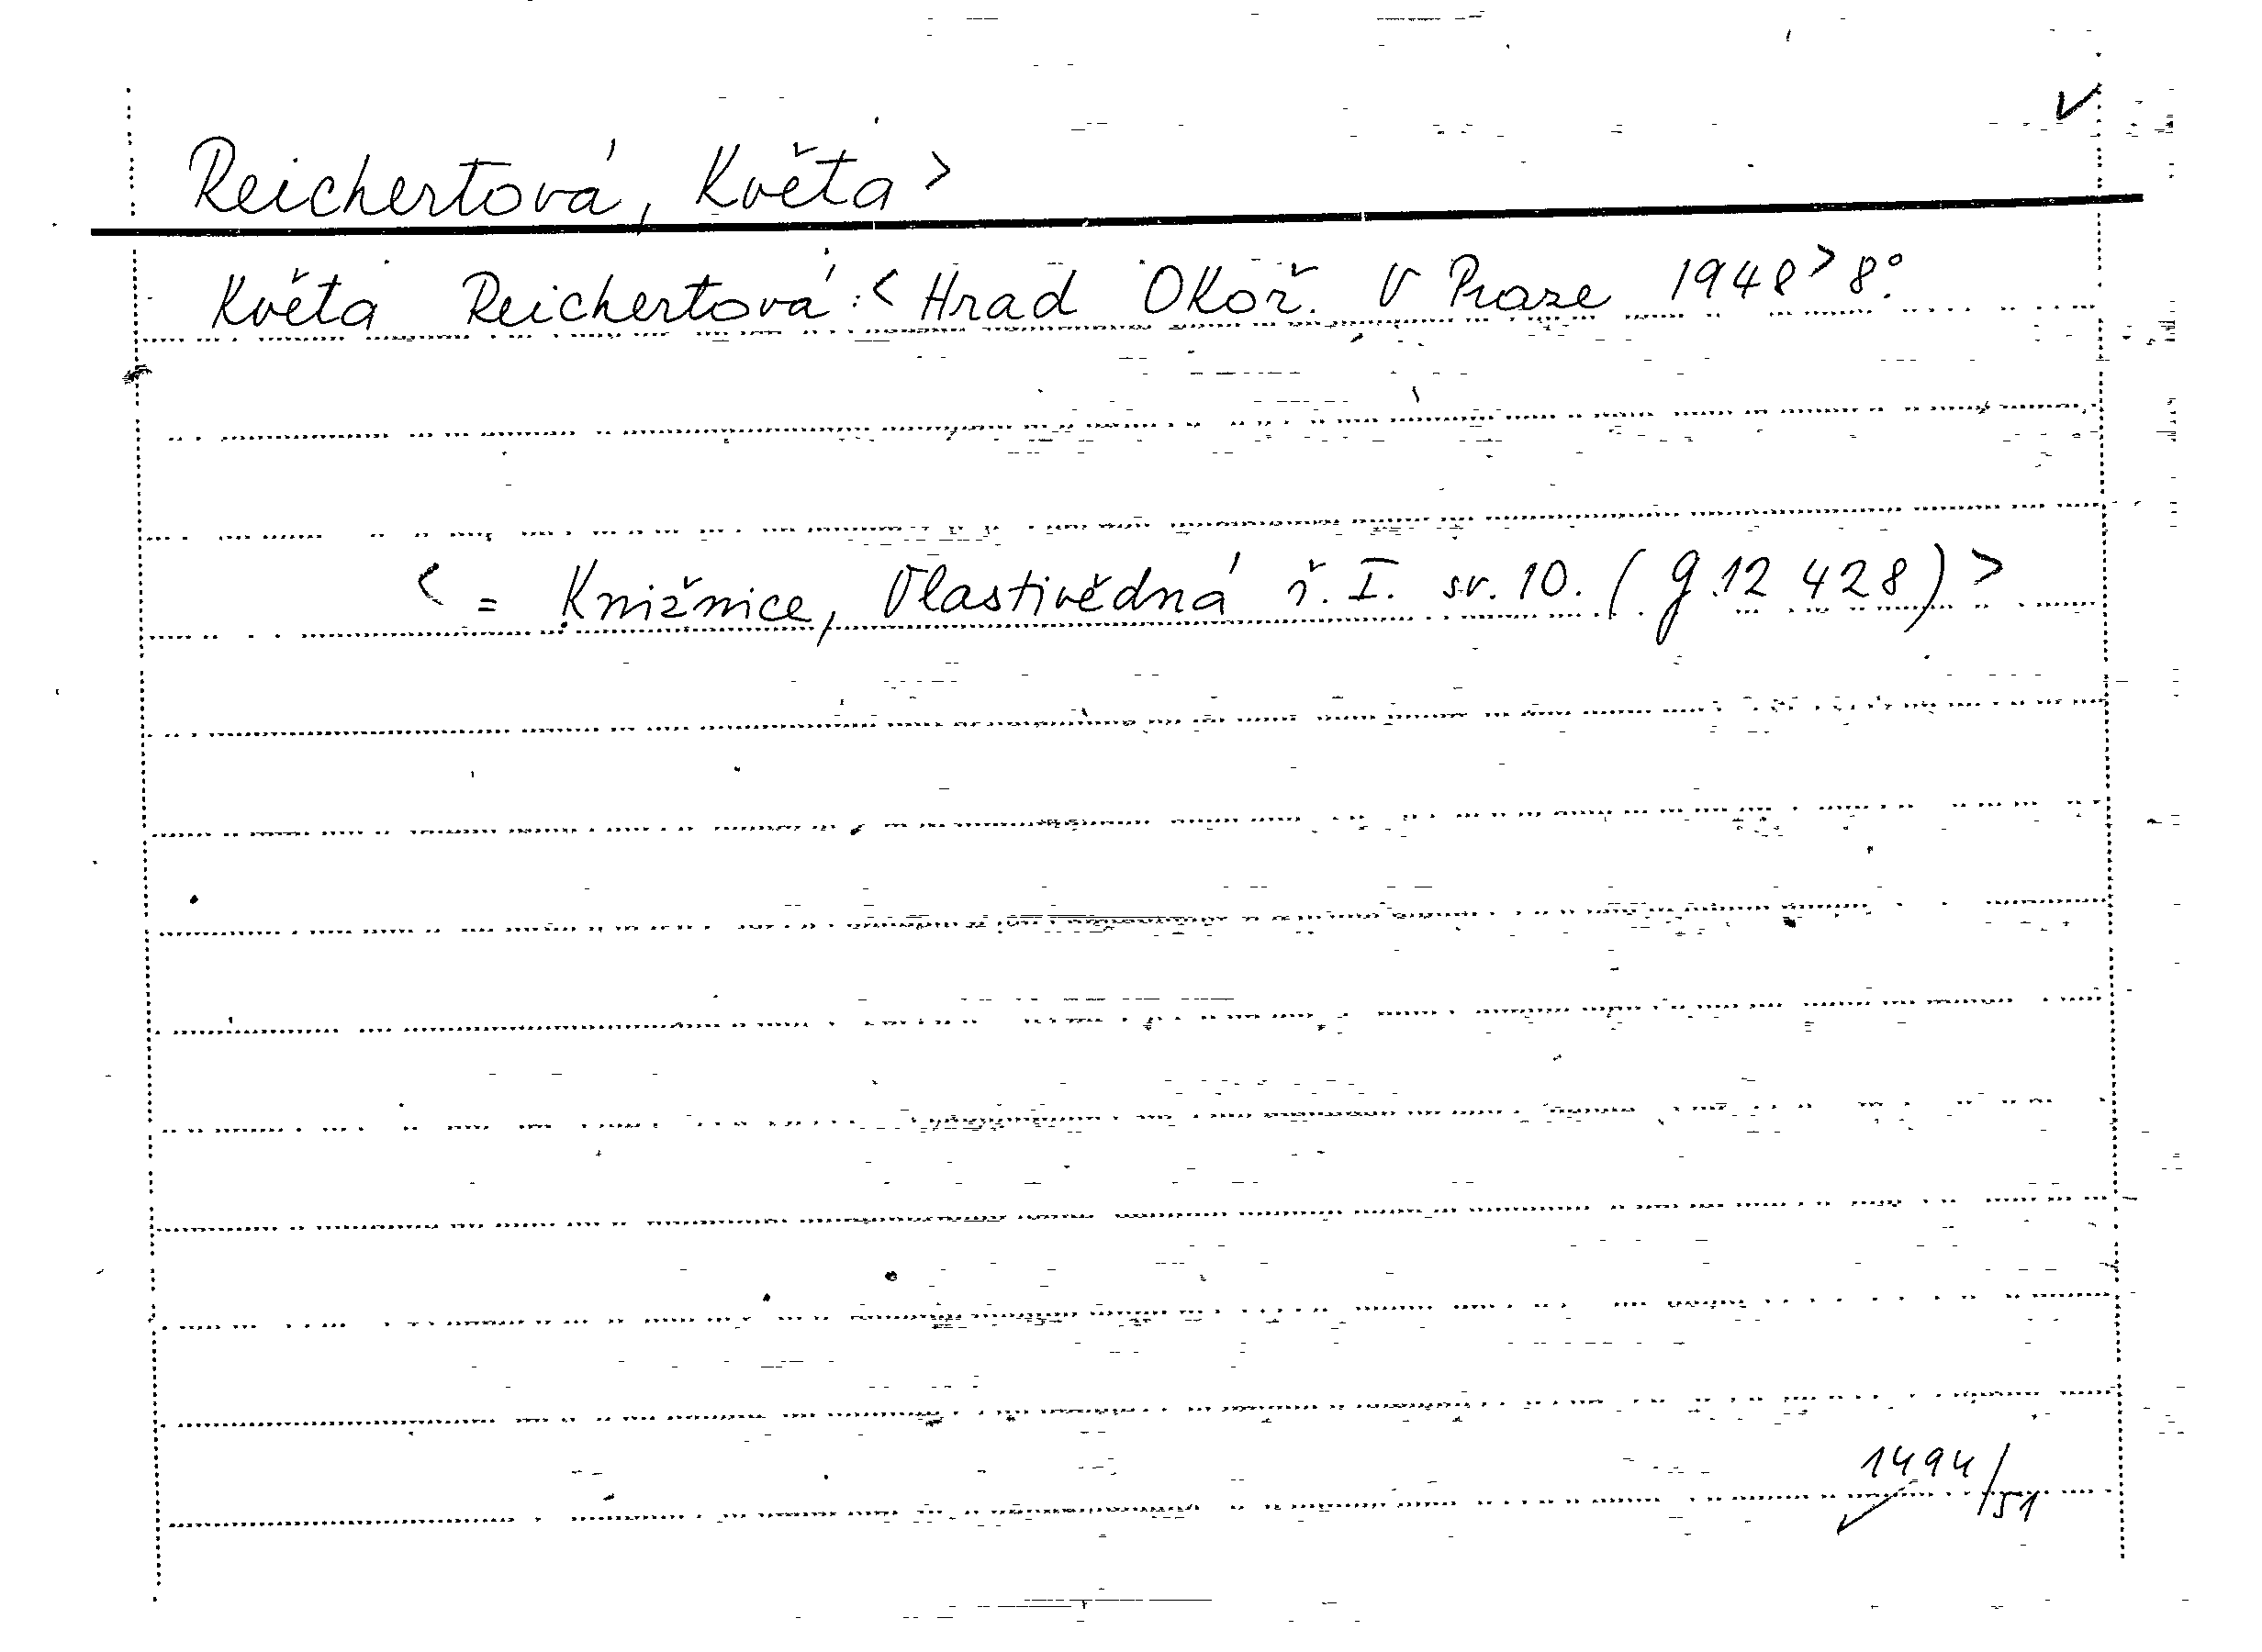 Reichertová, Květa >
Květa Reichertová: < Hrad Okoř. V Praze 1948 > 8°.
< = Knižnice, Vlastivědná ř. I. sv. 10. (g.12 428) >
1494/51